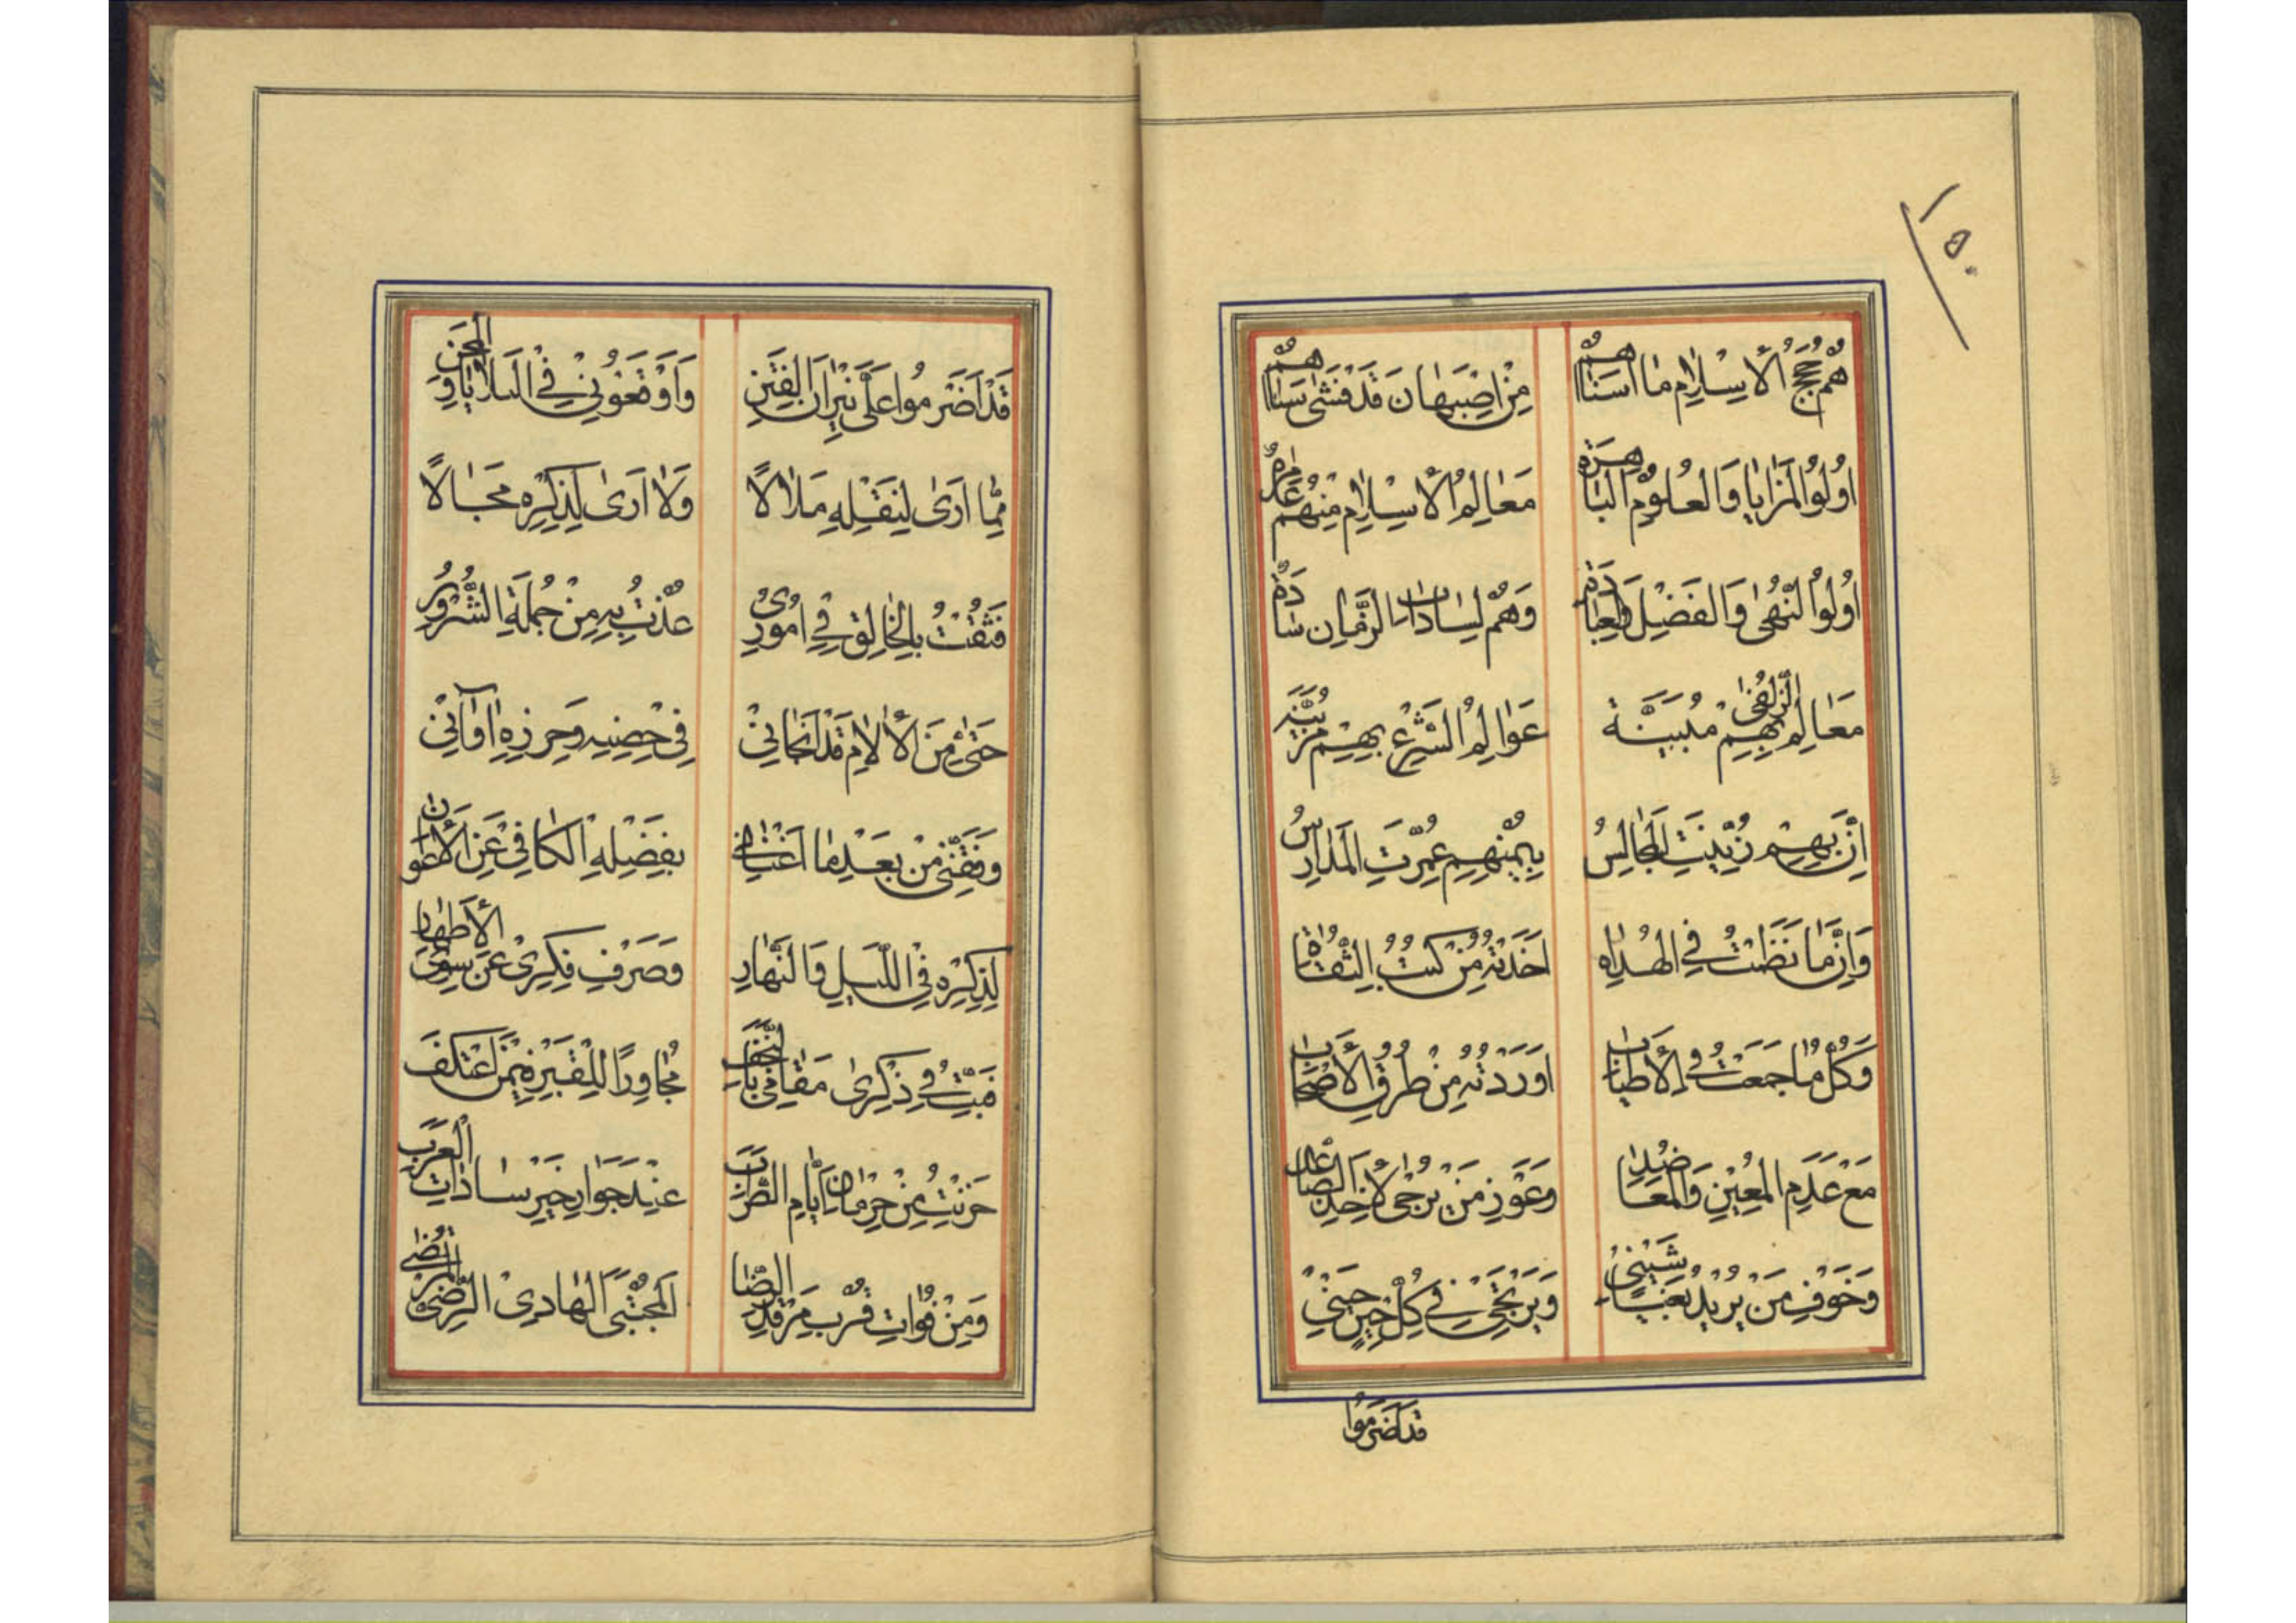 ١٥٠
هُمْ حُجَجُ الْأِسْلٰامِ مٰا اَسْنٰاهُمْ مِنْ اِصْبَهٰانَ قَدْ فَشٰى سَنٰاهُمْ
اُولُوا الْمَزٰايٰا وَالْعُلُومِ الْبٰاهِرَةِ مَعٰالِمُ الْأِسْلٰامِ مِنْهُمْ عٰامِرَةٌ
اُولُوا النُّهىٰ وَالْفَضْلِ وَالْعِبٰادَةِ وَهُمْ لِسٰادٰاتِ الزَّمٰانِ سٰادَةٌ
مَعٰالِمُ الزُّلْفىٰ بِهِمْ مُبَيَّنَة عَوٰالِمُ الشَّرْعِ بِهِمْ مُزَيَّنَة
اِنَّ بِهِمْ زُيِّنَتِ الْمَجٰالِسُ بِيُمْنِهِمْ عُمِّرَتِ الْمَدٰارِسُ
وَاِنَّمٰا نَظَمْتُ فِي الْهُدٰاه اَخَذْتُهُ مِنْ كُتُبِ الثِّقٰاةِ
وَكُلُّ مٰا جَمَعْتُ فِي الْأَطْيٰابِ اَوْرَدْتُهُ مِنْ طُرُقِ الْأَصْحٰابِ
مَعْ عَدَمِ الْمُعِيْنِ وَالْمُعٰاضِدِ وَعَوْزِ مَنْ يُرْجىٰ لِأَخْذِ الصّٰاعِدِ
وَخَوْفِ مَنْ يُرِيْدُ بَغْيًا شَيْنِيْ وَيَرْتَجِيْ فِي كُلِّ حِيْنٍ حَيْنِيْ
قَد اَضْرَمُوا
قَدْ اَضْرَمُوا عَلَىَّ نِيْرٰانَ الْفِتَنِ وَاَوْقَعُوْنِيْ فِي الْبَلٰايٰا وَالْمِحَنِ
مِمّٰا اَرىٰ لِنَقْلِهِ مَلٰالًا وَلٰا اَرىٰ لِذِكْرِهِ مَجٰالًا
فَثِقْتُ بِالْخٰالِقِ فِي اُمُوْرِيْ عُذْتُ بِهِ مِنْ جُمْلَةِ الشُّرُوْرِ
حَتّىٰ مِنَ الْأٰلٰامِ قَدْ اَنْجٰانِيْ فِي حِصْنِهِ وَحِرْزِهِ اٰوٰانِيْ
وَفَّقَنِيْ مِنْ بَعْدِ مٰا اَغْنٰانِي بِفَضْلِهِ الْكٰافِيْ عَنِ الْأَعْوٰانِ
لِذِكْرِهِ فِي اللَّيْلِ وَالنَّهٰارِ وَصَرْفِ فِكْرِيْ عَنْ سِوَى الْأَطْهٰارِ
فَبَيْتُ فِي ذِكْرىٰ مَقٰامِيْ بِالنَّجَفِ مُجٰاوِرًا لِلْقَبْرِ فِيْمَنْ اعْتَكَفَ
حَزِنْتُ مِنْ حِرْمٰانِ اَيّٰامِ الطَّرَبِ عِنْدَ جَوٰارِ خَيْرِ سٰادٰاتِ الْعَرَبِ
وَمِنْ فَوٰاتِ قُرْبِ مَرْقَدِ الرِّضٰا الْمُجْتَبَى الْهٰادِى الرَّضِيِّ الْمُرْتَضىٰ